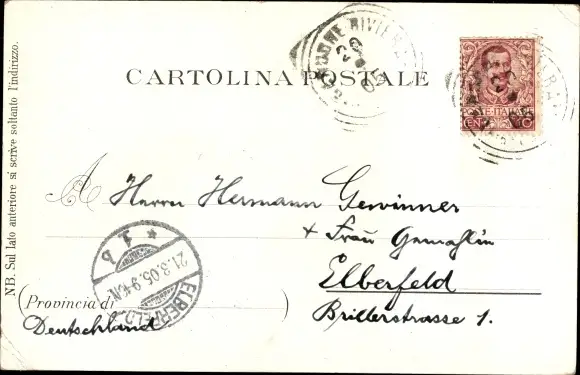 CARTOLINA POSTALE
NB. Sul lato anteriore si scrive soltanto l'indirizzo.
GARDONE RIVIERA
20
POSTE ITALIANE
A Herrn Hermann Gewinner
+ Frau Gemahlin
Elberfeld
Brillerstrasse 1.
(Provincia di )
Deutschland
* 1 d
21.3.05.9-10.N.
ELBERFELD